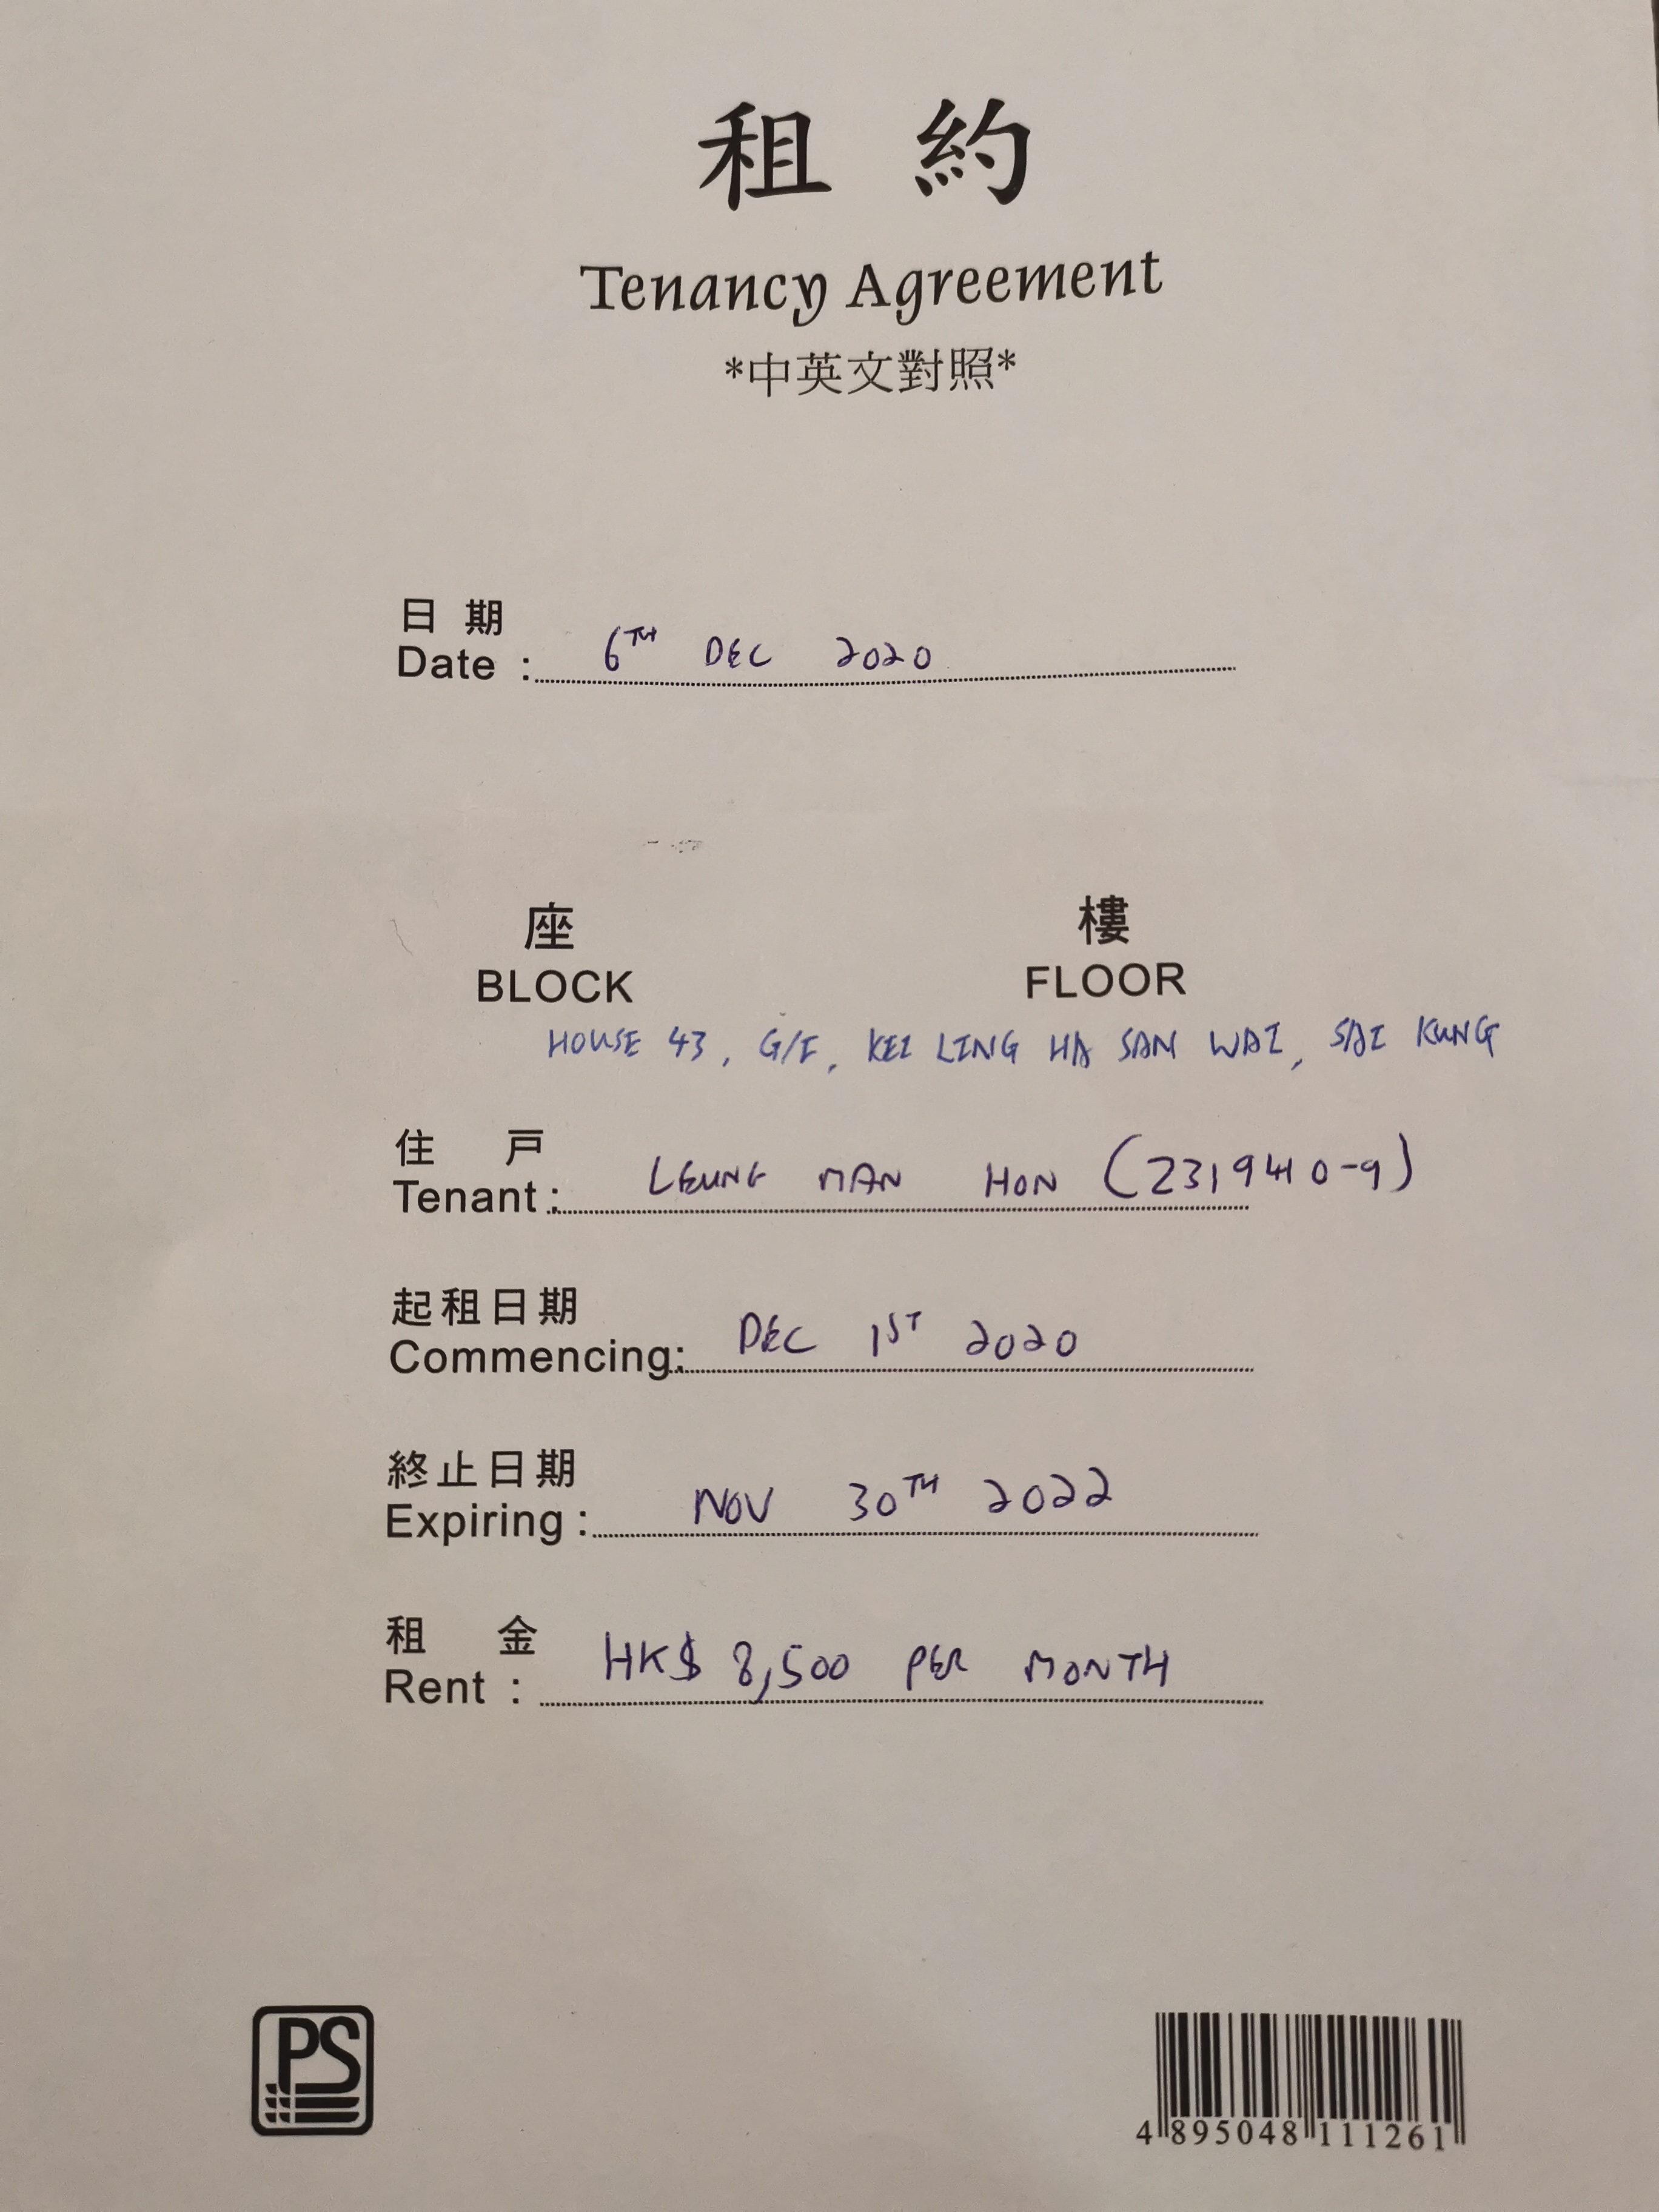 租 約
Tenancy Agreement
*中英文對照*
日 期
Date : 6TH DEC 2020
座 樓
BLOCK FLOOR
HOUSE 43, G/F, KEI LING HA SAN WAI, SAI KUNG
住 戶
Tenant : LEUNG MAN HON (Z319410-9)
起租日期
Commencing: DEC 1ST 2020
終止日期
Expiring : NOV 30TH 2022
租 金
Rent : HK$ 8,500 PER MONTH
PS
4 895048 111261